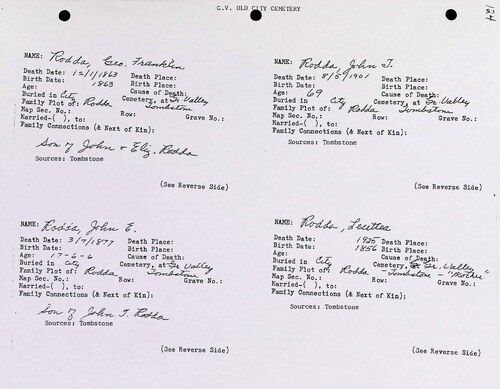 G.V. OLD CITY CEMETERY
124
NAME: Rodda, Geo. Franklin
Death Date: 12/1/1863 Death Place:
Birth Date: 1863 Birth Place:
Age: Cause of Death:
Buried in City Cemetery, at Gr. Valley
Family Plot of: Rodda Tombstone
Map Sec. No.: Row: Grave No.:
Married-( ), to:
Family Connections (& Next of Kin):
Son of John & Eliz. Rodda
Sources: Tombstone
(See Reverse Side)
NAME: Rodda, John T.
Death Date: 8/5/1901 Death Place:
Birth Date: Birth Place:
Age: 69 Cause of Death:
Buried in City Cemetery, at Gr. Valley
Family Plot of: Rodda Tombstone
Map Sec. No.: Row: Grave No.:
Married-( ), to:
Family Connections (& Next of Kin):
Sources: Tombstone
(See Reverse Side)
NAME: Rodda, John E.
Death Date: 3/7/1877 Death Place:
Birth Date: Birth Place:
Age: 17-6-6 Cause of Death:
Buried in City Cemetery, at Gr. Valley
Family Plot of: Rodda Tombstone
Map Sec. No.: Row: Grave No.:
Married-( ), to:
Family Connections (& Next of Kin):
Son of John T. Rodda
Sources: Tombstone
(See Reverse Side)
NAME: Rodda,
Death Date: 1925 Death Place:
Birth Date: 1856 Birth Place:
Age: Cause of Death:
Buried in City Cemetery, at Gr. Valley
Family Plot of: Rodda - Tombstone - "Mother"
Map Sec. No.: Row: Grave No.:
Married-( ), to:
Family Connections (& Next of Kin):
Sources: Tombstone
(See Reverse Side)